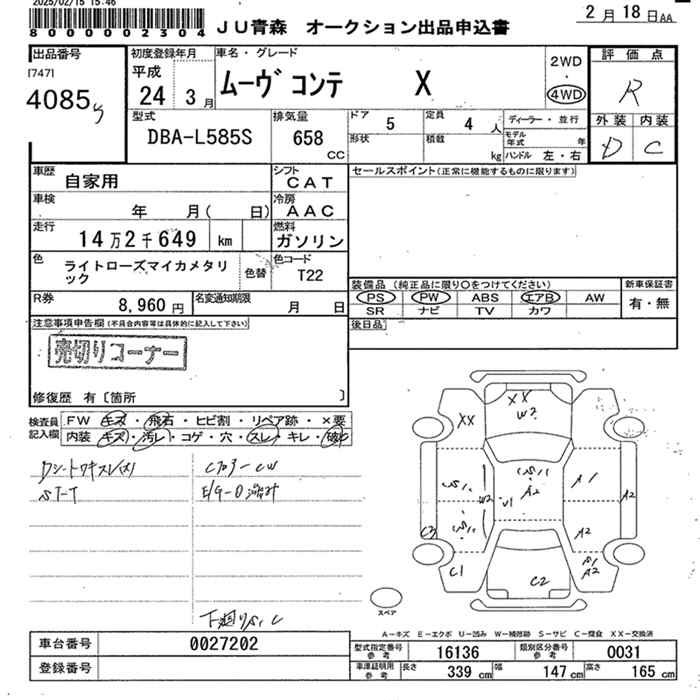 2025/02/15 15:46
8000002304
JU青森 オークション出品申込書
2月18日AA
出品番号
[747]
4085
初度登録年月
平成
24 3月
車名・グレード
ムーヴ コンテ X
2WD
・
4WD
評価点
R
外装 内装
D C
型式
DBA-L585S
排気量
658
CC
ドア
5
定員
4人
形状
積載
kg
ディーラー・並行
モデル年式 年
ハンドル 左・右
車歴
自家用
シフト
CAT
セールスポイント(正常に機能するものに限ります)
車検
年 月( 日)
冷房
AAC
走行
14万2千649 km
燃料
ガソリン
色
ライトローズマイカメタリック
色替
色コード
T22
装備品 (純正品に限り○をつけてください)
PS PW ABS エアB AW
SR ナビ TV カワ
新車保証書
有・無
R券
8,960円
名変通知期限
月 日
後日品
注意事項申告欄(不具合内容等は具体的に記入して下さい)
売切りコーナー
修復歴 有〔箇所 〕
検査員記入欄
FW キズ・飛石・ヒビ割・リペア跡・×要
内装 キズ・汚レ・コゲ・穴・スレ・キレ・破レ
XX
XX
W2
A2
A1
W2
U1
A2
C3
A2
C1
C2
A2
スペア
A-キズ E-エクボ U-凹み W-補修跡 S-サビ C-腐食 XX-交換済
車台番号
0027202
登録番号
型式指定番号 参考
16136
類別区分番号 参考
0031
車庫証明用 参考
長さ 339 cm 幅 147 cm 高さ 165 cm